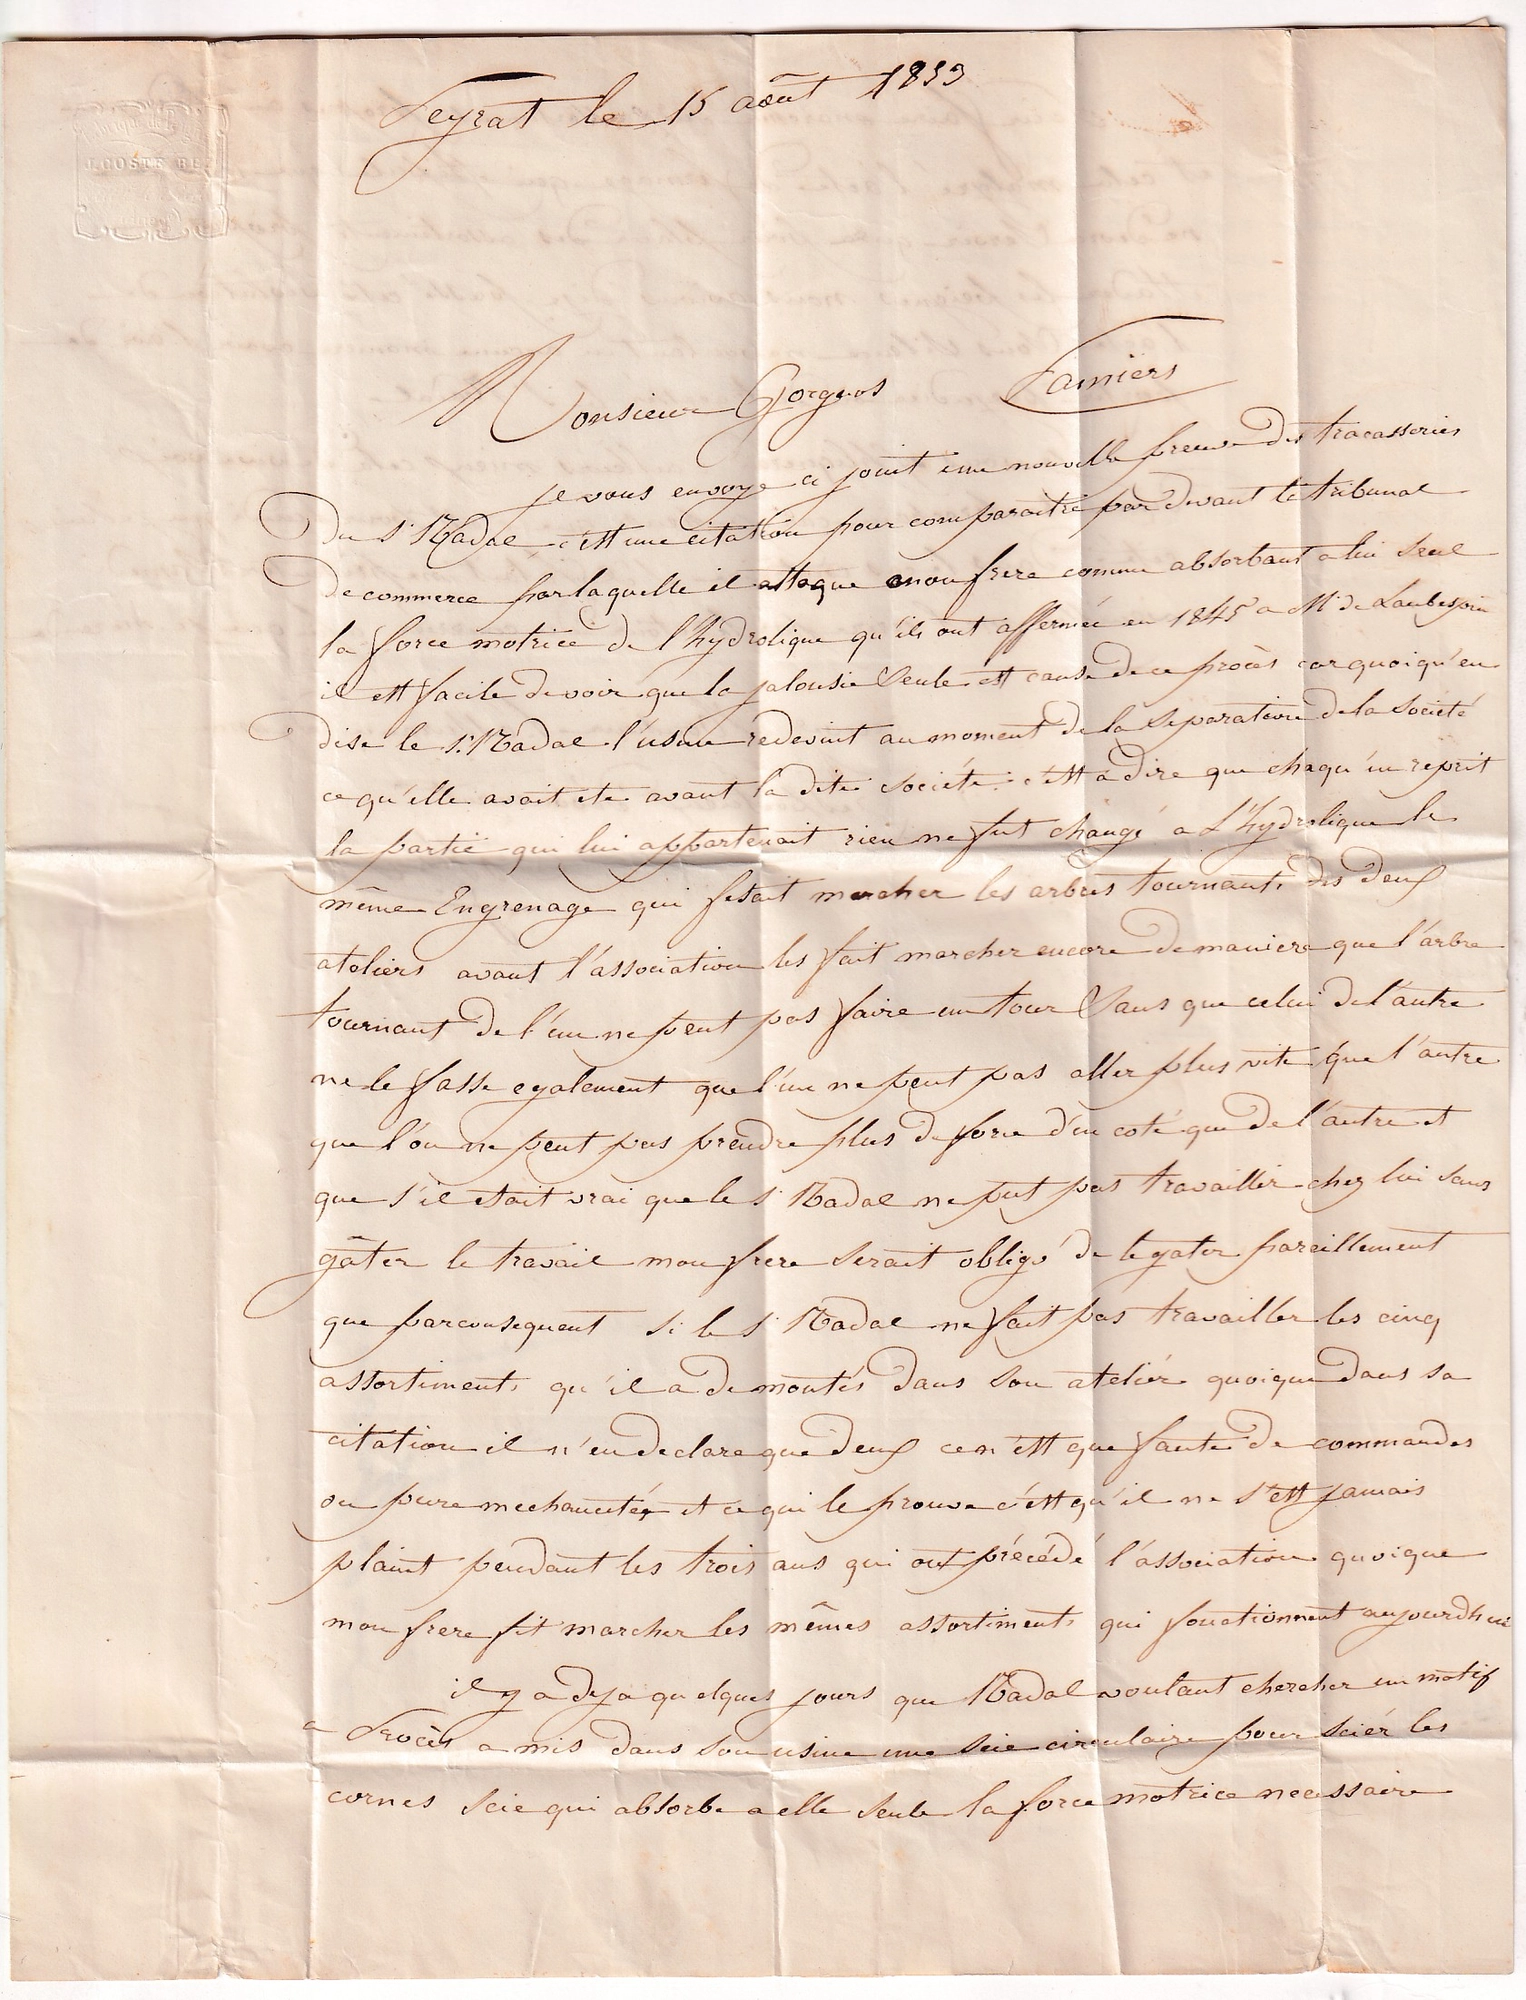 J. COSTE
Peyrat le 15 août 1853
Monsieur Gorguos Pamiers
je vous envoye ci joint une nouvelle preuve des tracasseries
Du Sr Nadal c'est une citation pour comparaitre par devant le tribunal
De commerce par laquelle il attaque mon frere comme absorbant a lui seul
la force motrice de l'hydrolique qu'ils ont affermée en 1845 a Mr de Laubespin
il est facile de voir que la jalousie seule est cause de ce procès car quoiqu'en
dise le Sr Nadal l'usine redevint au moment de la separation de la société
ce qu'elle avait ete avant la dite société c'est a dire que chaqu'un reprit
la partie qui lui appartenait rien ne fut changé a L'hydrolique le
même Engrenage qui fesait marcher les arbres tournants des deux
ateliers avant l'association les fait marcher encore de maniere que l'arbre
tournant de l'un ne peut pas faire un tour sans que celui de l'autre
ne le fasse egalement que l'un ne peut pas aller plus vite que l'autre
que l'on ne peut pas prendre plus de force d'un coté que de l'autre et
que s'il etait vrai que le Sr Nadal ne put pas travailler chez lui sans
gâter le travail mon frere serait obligé de le gater pareillement
que parconsequent si le Sr Nadal ne fait pas travailler les cinq
assortiments qu'il a de montés dans son atelier quoique dans sa
citation il n'en declare que deux ce n'est que faute de commandes
ou pure mechanceté et ce qui le prouve c'est qu'il ne s'est jamais
plaint pendant les trois ans qui ont précédé l'association quoique
mon frere fit marcher les mêmes assortiments qui fonctionnent aujourdhui
il y a deja quelques jours que Nadal voulant chercher un motif
a Procès a mis dans son usine une scie circulaire pour sciér les
cornes scie qui absorbe a elle seule la force motrice necessaire